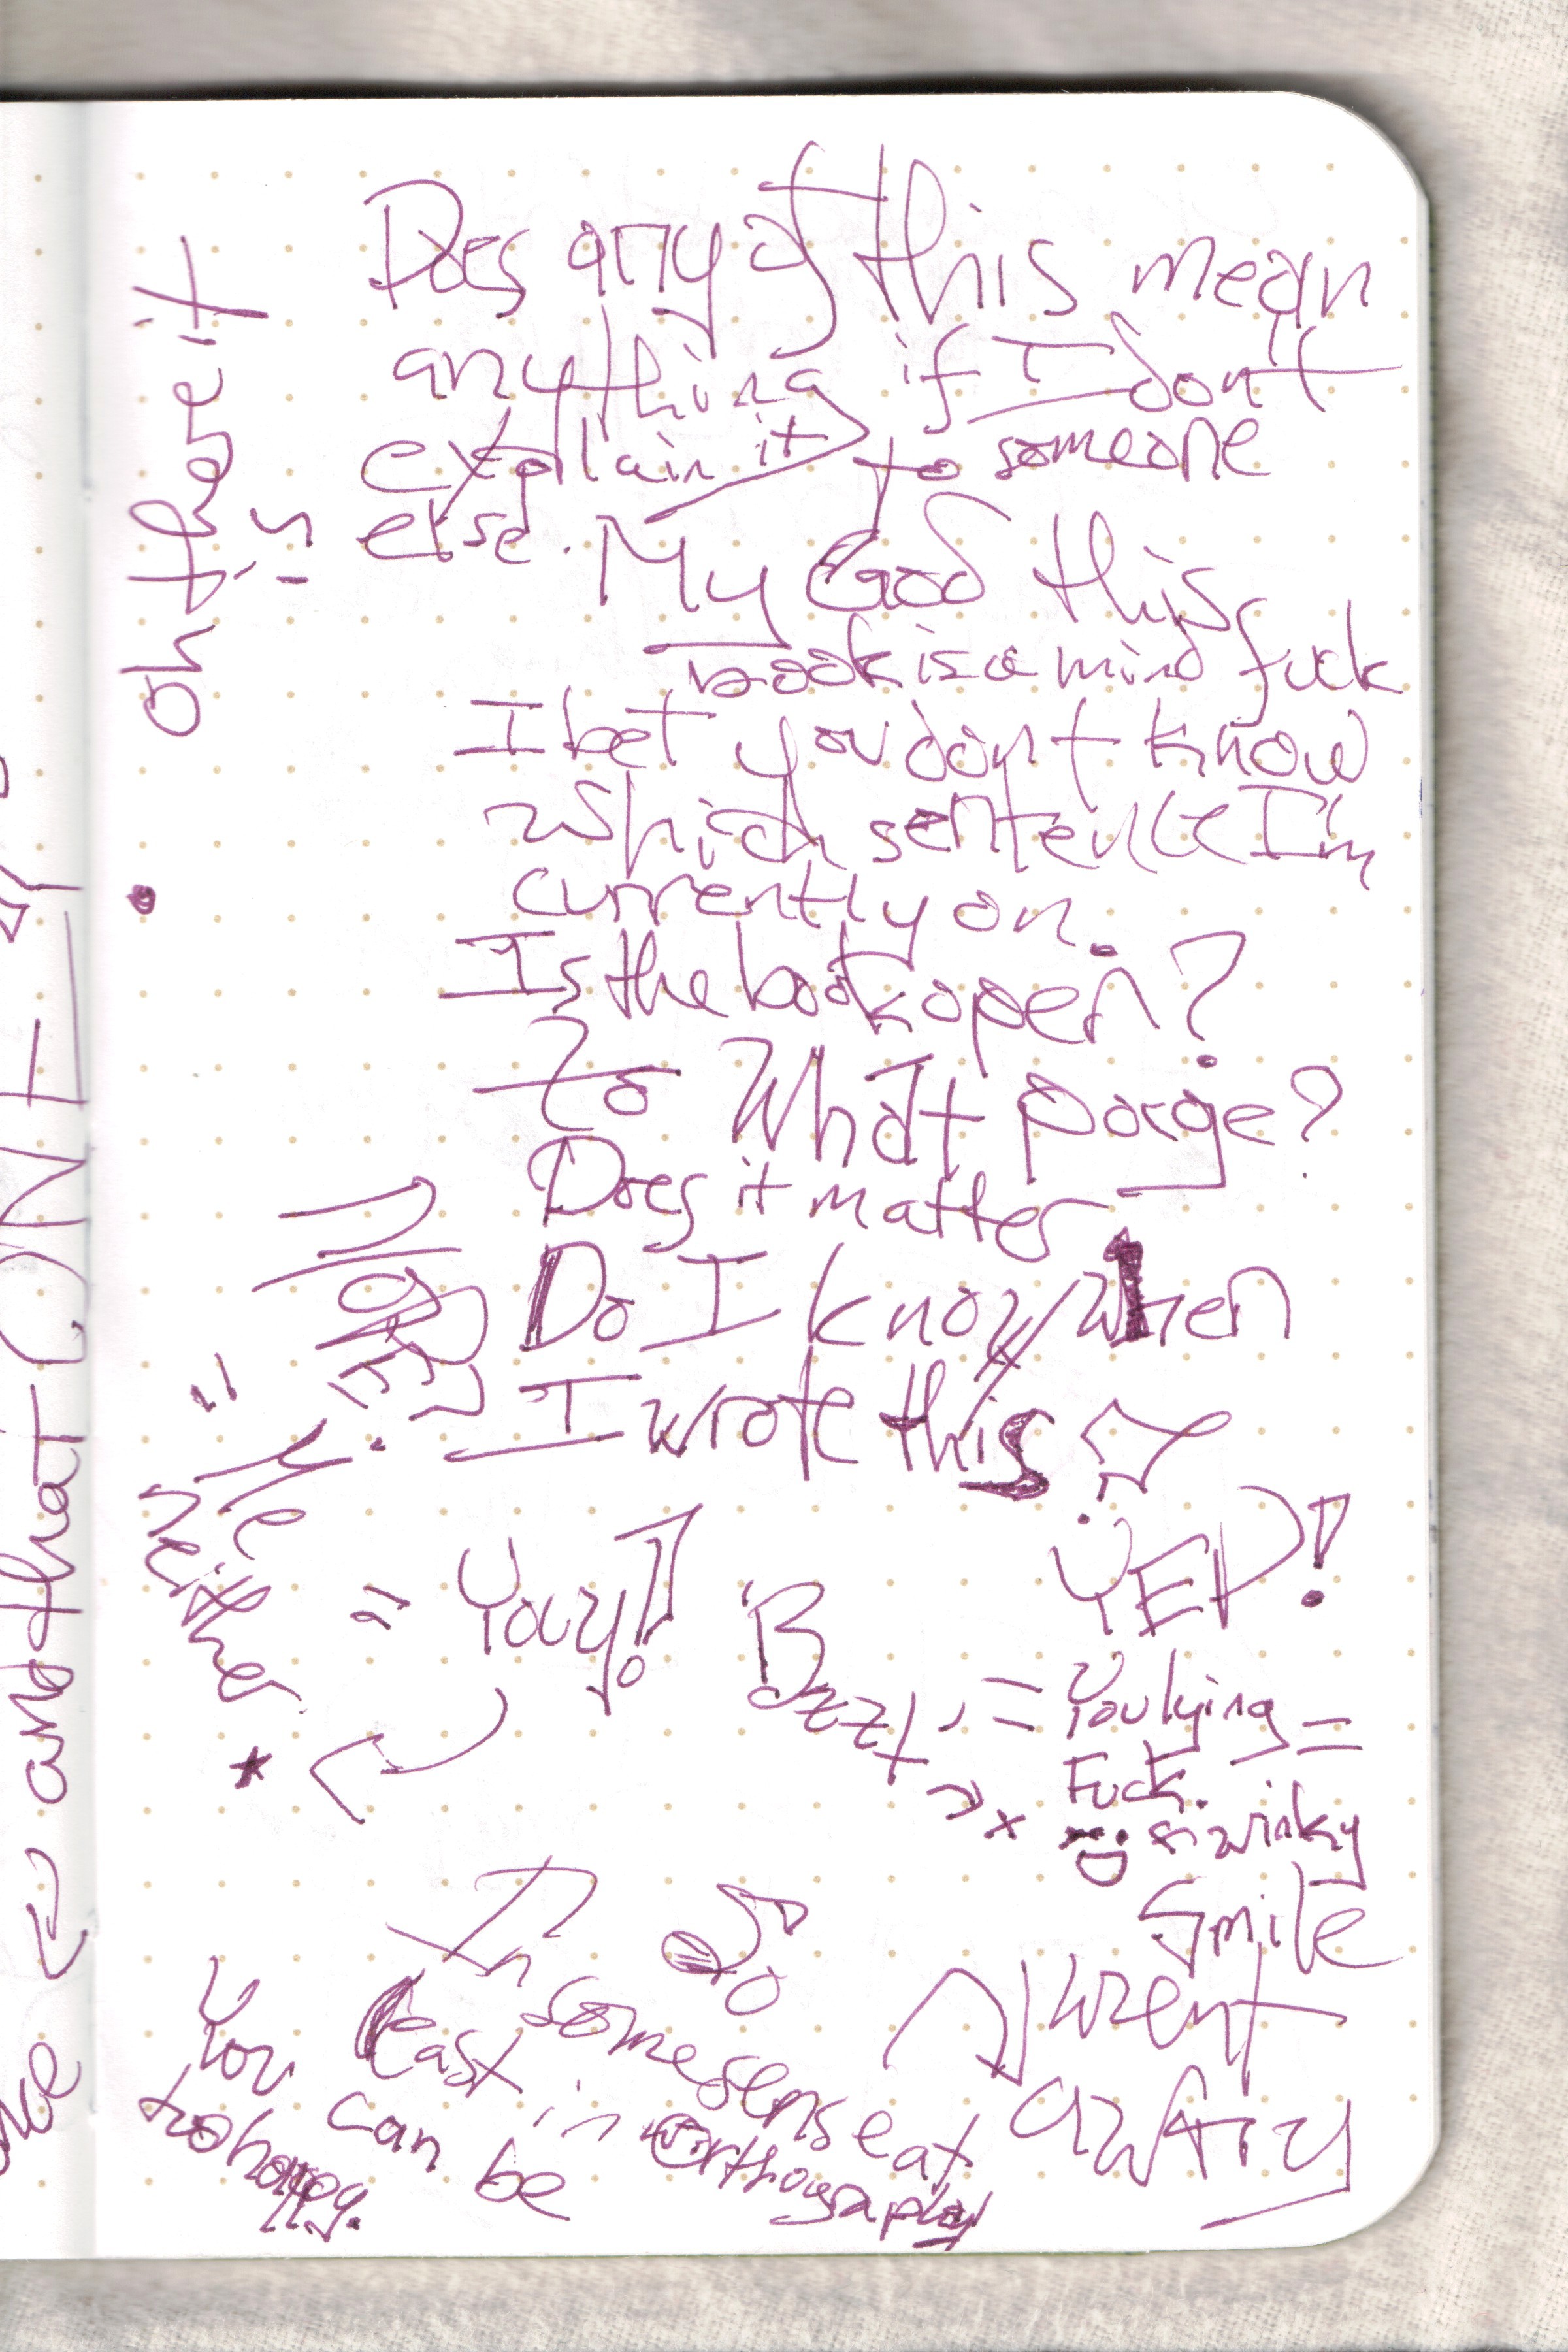 Does any of this mean
anything if I dont
explain it to someone
else. My God this
book is a mind fuck
I bet you don't know
which sentence I'm
currently on.
Is the book open?
To What page?
Does it matter
Do I know when
I wrote this?
YEP!
Bzzt, = You lying =
Fuck.
winky
smile
Yay!
=
Me
=
Neither
oh there it
is
went
awry
So
In some sense at
least in orthography
You can be
too happy.
and that ONE